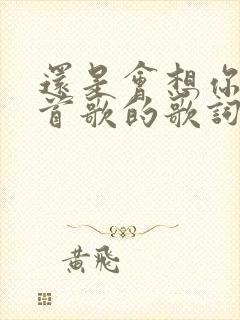 還是會想你
首歌的歌詞
黃飛